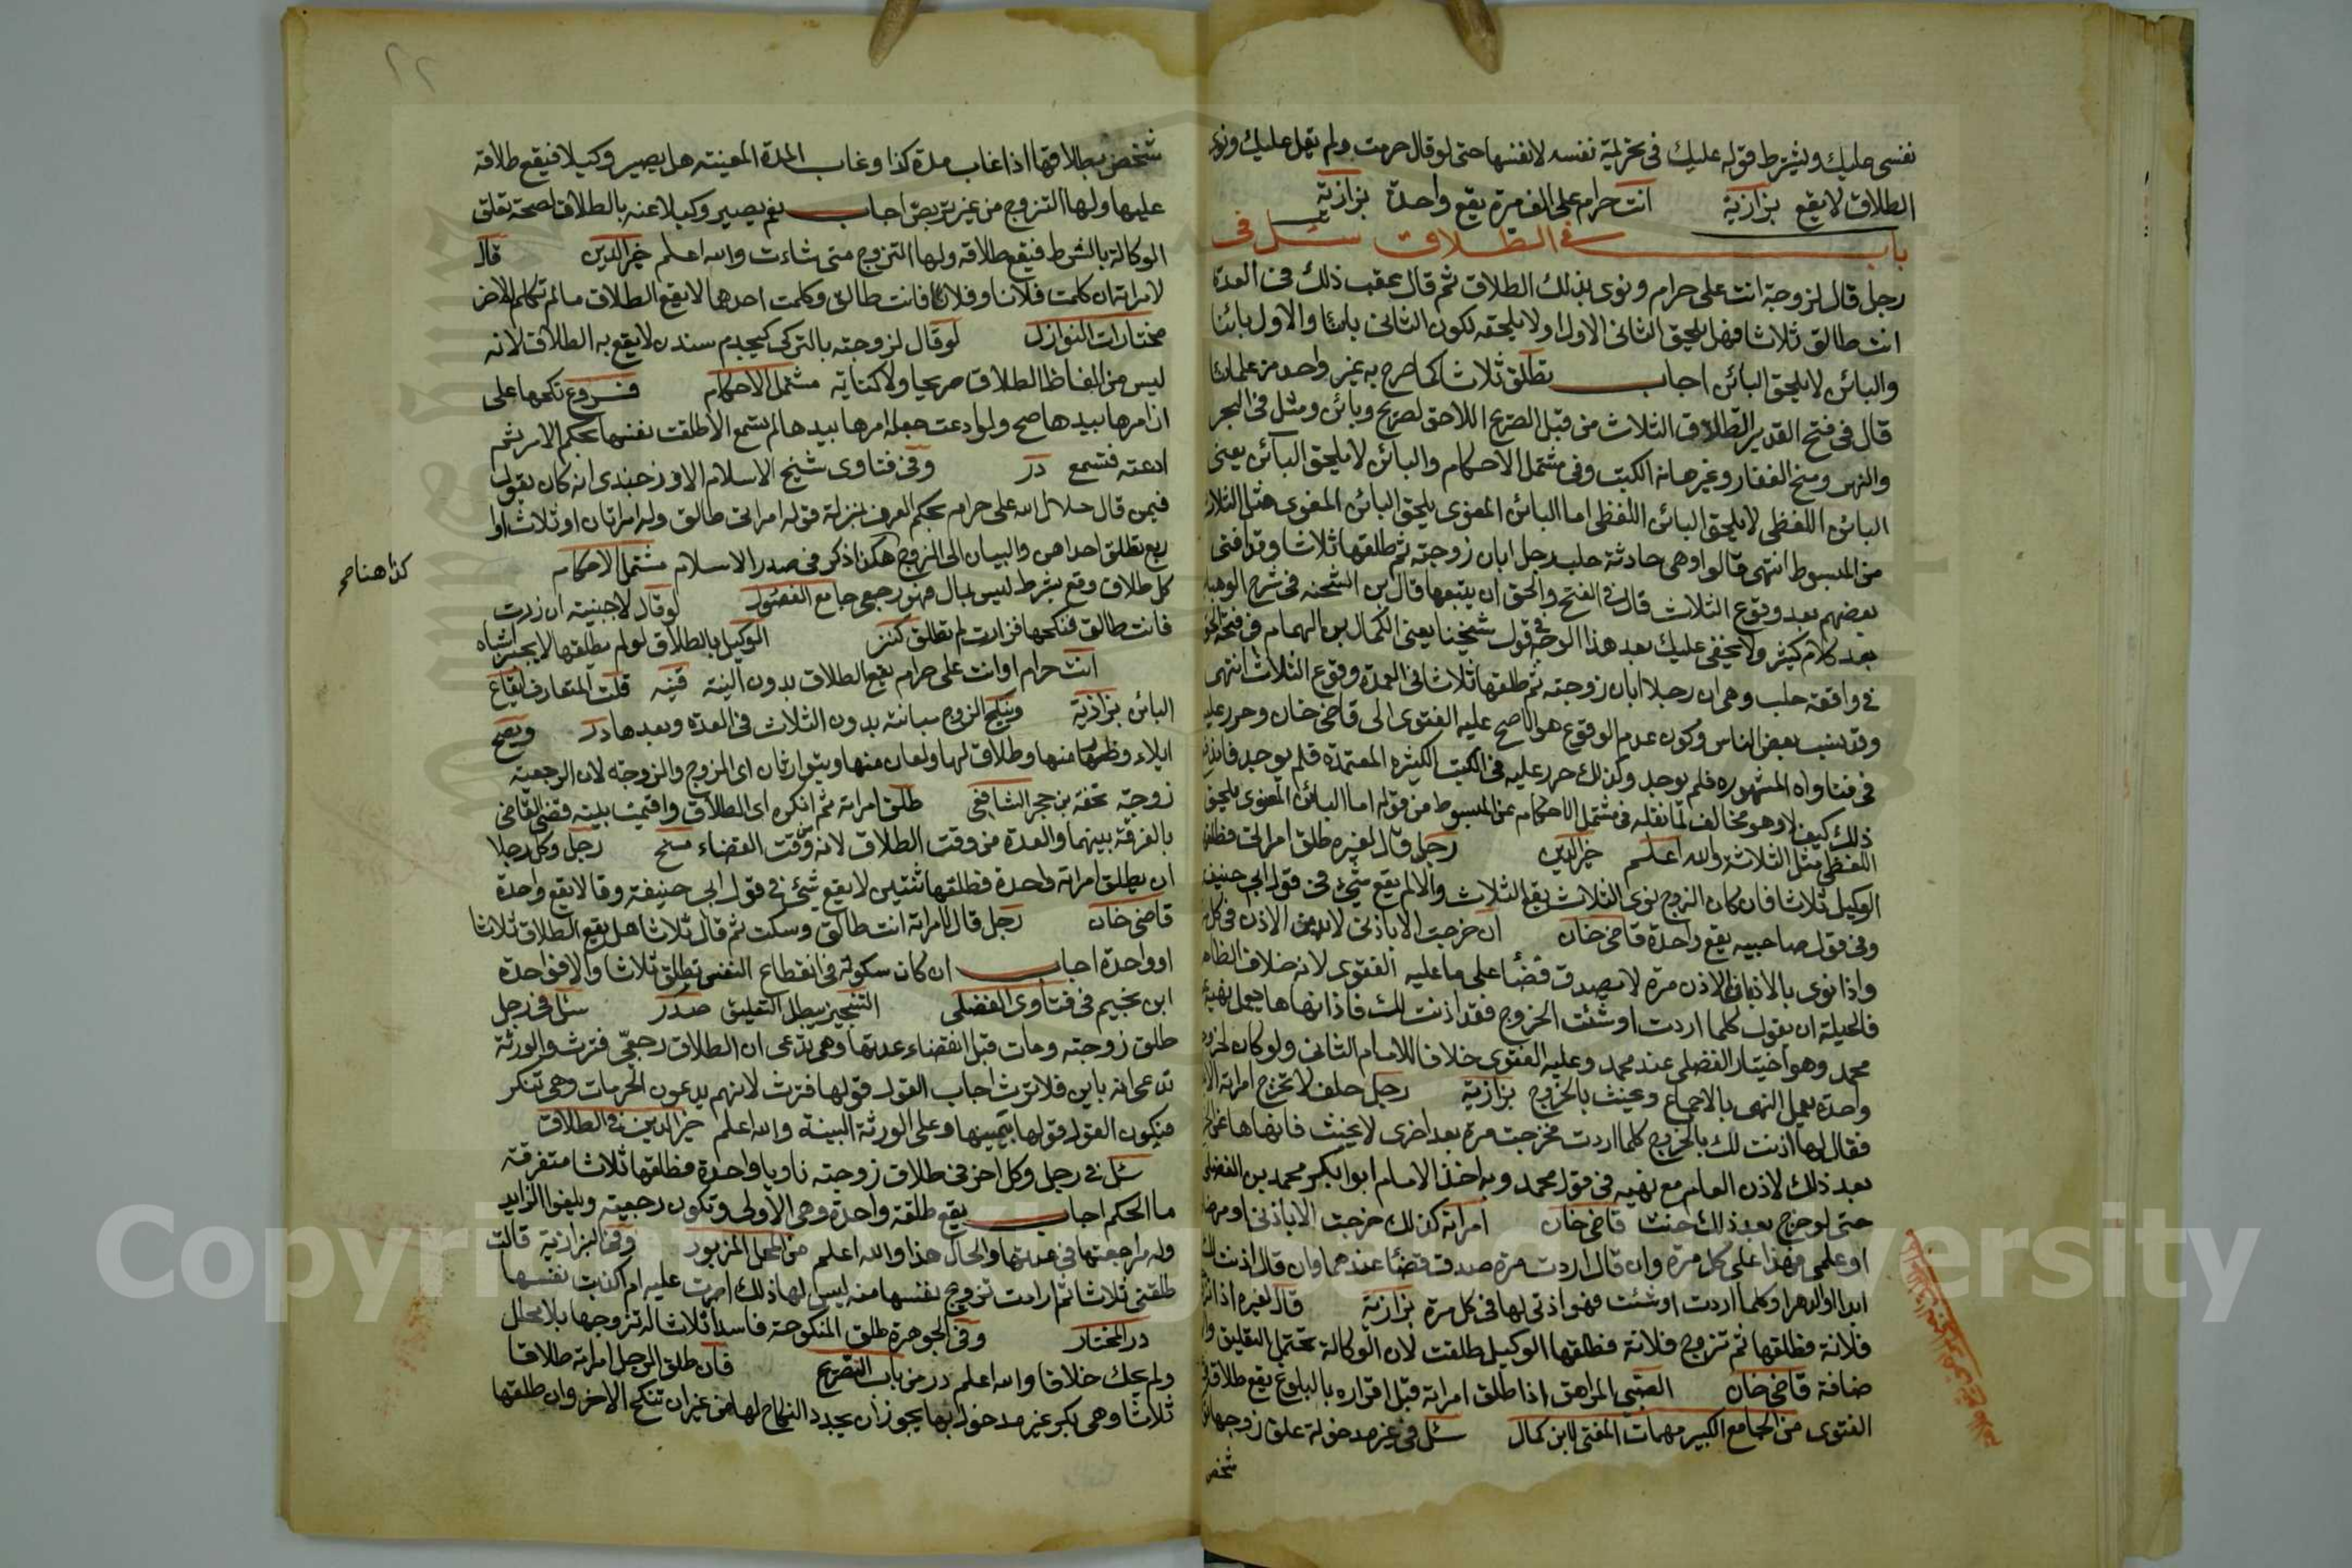 نفسى عليك ويشترط قوله عليك فى تحريمة نفسه لا نفسها حتى لو قال حرمت ولم يقل عليك ونوى
الطلاق لا يقع بزازية انت حرام على الف مرة يقع واحدة بزازية
باب فى الطلاق سئل فى
رجل قال لزوجته انت على حرام ونوى بذلك الطلاق ثم قال عقب ذلك فى العدة
انت طالق ثلاثا فهل يلحق الثانى الاول او لا يلحقه لكون الثانى بائنا والاول بائنا
والبائن لا يلحق البائن اجاب تطلق ثلاثا كما صرح به غير واحد من علمائنا
قال فى فتح القدير الطلاق الثلاث من قبل الصريح اللاحق لصريح وبائن ومثل فى البحر
والنهر ومنح الغفار وغيرها من الكتب وفى مشتمل الاحكام والبائن لا يلحق البائن يعنى
البائن اللفظى لا يلحق البائن اللفظى اما البائن المعنوى يلحق البائن المعنوى مثل الثلاث
من المبسوط انتهى قالوا وهى حادثة حلب رجل ابان زوجته ثم طلقها ثلاثا وقد افتى
بعضهم بعدم وقوع الثلاث قال فى الفتح والحق ان يتبعها قال بن الشحنه فى شرح الوهبا
بعد كلام كثير ولا يخفى عليك بعد هذا الوجه قول شيخنا يعنى الكمال بن الهمام فى فتحه الحق
فى واقعة حلب وهى ان رجلا ابان زوجته ثم طلقها ثلاثا فى العدة وقوع الثلاث انتهى
وقد نسب بعض الناس وكون عدم الوقوع هو الاصح عليه الفتوى الى قاضى خان وحرر عليه
فى فتاواه المشهوره فلم يوجد وكذلك حرر عليه فى الكتب الكثيره المعتمدة فلم يوجد
ذلك كيف لا وهو مخالف لما نقله فى مشتمل الاحكام عن المبسوط من قوله اما البائن المعنوى يلحق
اللفظى مثل الثلاث والله اعلم خير الدين رجل قال لغيره طلق امراتى فطلقها
الوكيل ثلاثا فان كان الزوج نوى الثلاث يقع الثلاث والا لم يقع شىء فى قول ابى حنيفه
وفى قول صاحبيه يقع واحدة قاضى خان ان خرجت الا باذنى لا بد من الاذن فى كل
واذا نوى بالاذن الاذن مرة لا يصدق قضأ على ما عليه الفتوى لانه خلاف الظاهر
فالحيلة ان يقول كلما اردت او شئت الخروج فقد اذنت لك فاذا نهاها يعمل نهيه
محمد وهو اختيار الفضلى عند محمد وعليه الفتوى خلافا للامام الثانى ولو كان
واحدة يعمل النهى بالاجماع ويحنث بالخروج بزازية رجل حلف لا تخرج امراته الا
فقال لها اذنت لك بالخروج كلما اردت فخرجت مرة بعد اخرى لا يحنث فان نهاها عن
بعد ذلك لاذن العام مع نهيه فى قول محمد وبه اخذ الامام ابو ابكر محمد بن الفضل
حتى لو خرج بعد ذلك حنث قاضى خان امراته كذلك خرجت الا باذنى او مرضا
او علمى فهذا على كل مرة وان قال اردت مرة صدق قضأ عندهما وان قال اذنت لك
ابدا او الدهر او كلما اردت او شئت فهو اذن لها فى كل مرة بزازية قال لغيره اذا
فلانة فطلقها ثم تزوج فلانة فطلقها الوكيل طلقت لان الوكالة تحتمل التعليق
ضافة قاضى خان الصبى المراهق اذا طلق امراته قبل اقراره بالبلوغ يقع طلاقه
الفتوى من الجامع الكبير مهمات المفتى لابن كمال سئل فى غير مدخولة علق زوجها
شخص
شخص بطلاقها اذا غاب مدة كذا وغاب المدة المعينه هل يصير وكيلا فيقع طلاقه
عليها ولها التزوج من غير تربص اجاب نعم يصير وكيلا عنه بالطلاق لصحة تعلق
الوكالة بالشرط فيقع طلاقه ولها التزوج متى شاءت والله اعلم خير الدين قال
لامراته ان كلمت فلانا وفلانا فانت طالق وكلمت احدهما لا يقع الطلاق ما لم تكلم الاخر
مختارات النوازل لو قال لزوجته بالتركى كچدم سندن لا يقع به الطلاق لانه
ليس من الفاظ الطلاق صريحا ولا كناية مشتمل الاحكام فروع نكحها على
ان امرها بيدها صح ولو ادعت جعله امرها بيدها لم تسمع الا طلقت نفسها بحكم الامر ثم
ادعته فتسمع در وفى فتاوى شيخ الاسلام الاوزجندى انه كان يقول
فيمن قال حلال الله على حرام بحكم العرف بمنزلة قوله امراتى طالق وله امراتان او ثلاث او
ربع تطلق احداهن والبيان الى الزوج هكذا ذكر فى صدر الاسلام مشتمل الاحكام
كذا هنا صح
كل طلاق وقع بشرط ليس بمال فهو رجعى جامع الفصول لو قال لاجنبية ان زرت
فانت طالق فنكحها فزارت لم تطلق كنز الوكيل بالطلاق لو لم يطلقها لا يجبر اشباه
انت حرام او انت على حرام يقع الطلاق بدون النية قنيه قلت المتعارف ايقاع
البائن بزازية وينكح الزوج مبانته بدون الثلاث فى العدة وبعدها در ويصح
ايلاء وظهار منها وطلاق لها ولعان منها ويتوارثان اى الزوج والزوجة لان الرجعية
زوجة تحفة بن حجر الشافعى طلق امراته ثم انكره اى الطلاق واقيمت بينه فقضى القاضى
بالفرقة بينهما والعدة من وقت الطلاق لا من وقت القضاء منح رجل وكل رجلا
ان يطلق امراته واحدة فطلقها ثنتين لا يقع شىء فى قول ابى حنيفة وقالا يقع واحدة
قاضى خان رجل قال لامراته انت طالق وسكت ثم قال ثلاثا هل يقع الطلاق ثلاثا
او واحدة اجاب ان كان سكوته فى انقطاع النفس تطلق ثلاثا والا فواحدة
ابن نجيم فى فتاوى الفضلى التنجيز يبطل التعليق صدر سئل فى رجل
طلق زوجته ومات قبل انقضاء عدتها وهى تدعى ان الطلاق رجعى فترث والورثة
تدعى انه باين فلا ترث اجاب القول قولها فترث لانهم يدعون الحرمات وهى تنكر
فيكون القول قولها بيمينها وعلى الورثة البينة والله اعلم خير الدين فى الطلاق
سئل فى رجل وكل اخر فى طلاق زوجته ناويا واحدة فطلقها ثلاثا متفرقة
ما الحكم اجاب يقع طلقة واحدة وهى الاولى وتكون رجعية ويلغوا الزايد
وله مراجعتها فى عدتها والحال هذا والله اعلم من المحل المزبور وفى البزازية قالت
طلقنى ثلاثا ثم ارادت تزوج نفسها منه ليس لها ذلك اصرت عليه ام اكذبت نفسها
در المختار وفى الجوهرة طلق المنكوحة فاسدا ثلاثا له تزوجها بلا محلل
ولم يحك خلافا والله اعلم در من باب الصريح فان طلق الرجل امراته طلاقا
ثلاثا وهى بكر غير مدخول بها يجوز أن يجدد النكاح لها من غير ان تنكح الاخر وان طلقها